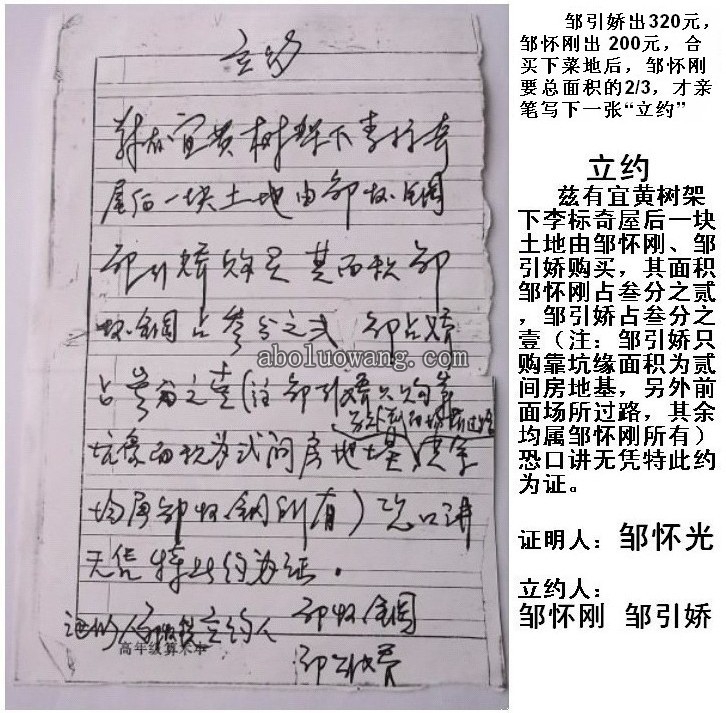 立约
兹有宜黄树架下李标奇
屋后一块土地由邹怀钢
邹引娇购买 其面积邹
怀钢占叁分之弍 邹引娇
占叁分之壹(注邹引娇只购靠
另外前面场所过路
坑缘面积为弍间房地基 其余
均属邹怀钢所有)恐口讲
无凭特此约为证.
证明人邹怀光立约人 邹怀钢
高年级算术本
邹引娇
aboluowang.com
邹引娇出320元，
邹怀刚出 200元，合
买下菜地后，邹怀刚
要总面积的2/3，才亲
笔写下一张“立约”
立约
兹有宜黄树架
下李标奇屋后一块
土地由邹怀刚、邹
引娇购买，其面积
邹怀刚占叁分之贰
，邹引娇占叁分之
壹（注：邹引娇只
购靠坑缘面积为贰
间房地基，另外前
面场所过路，其余
均属邹怀刚所有）
恐口讲无凭特此约
为证。
证明人：邹怀光
立约人：
邹怀刚 邹引娇